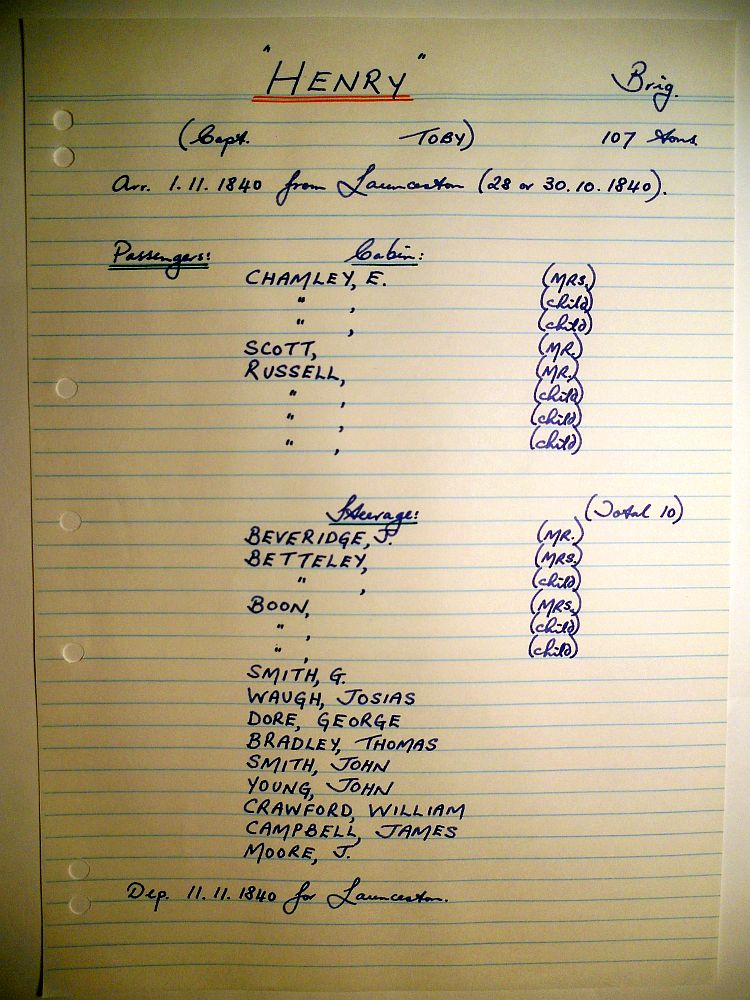 "HENRY" Brig.
(Capt. TOBY) 107 tons.
Arr. 1.11.1840 from Launceston (28 or 30.10.1840).
Passengers: Cabin:
CHAMLEY, E. (MRS.)
" , (child)
" , (child)
SCOTT, (MR.)
RUSSELL, (MR.)
" , (child)
" , (child)
" , (child)
Steerage: (Total 10)
BEVERIDGE, J. (MR.)
BETTELEY, (MRS.)
" , (child)
BOON, (MRS.)
" , (child)
" , (child)
SMITH, G.
WAUGH, JOSIAS
DORE, GEORGE
BRADLEY, THOMAS
SMITH, JOHN
YOUNG, JOHN
CRAWFORD, WILLIAM
CAMPBELL, JAMES
MOORE, J.
Dep. 11.11.1840 for Launceston.